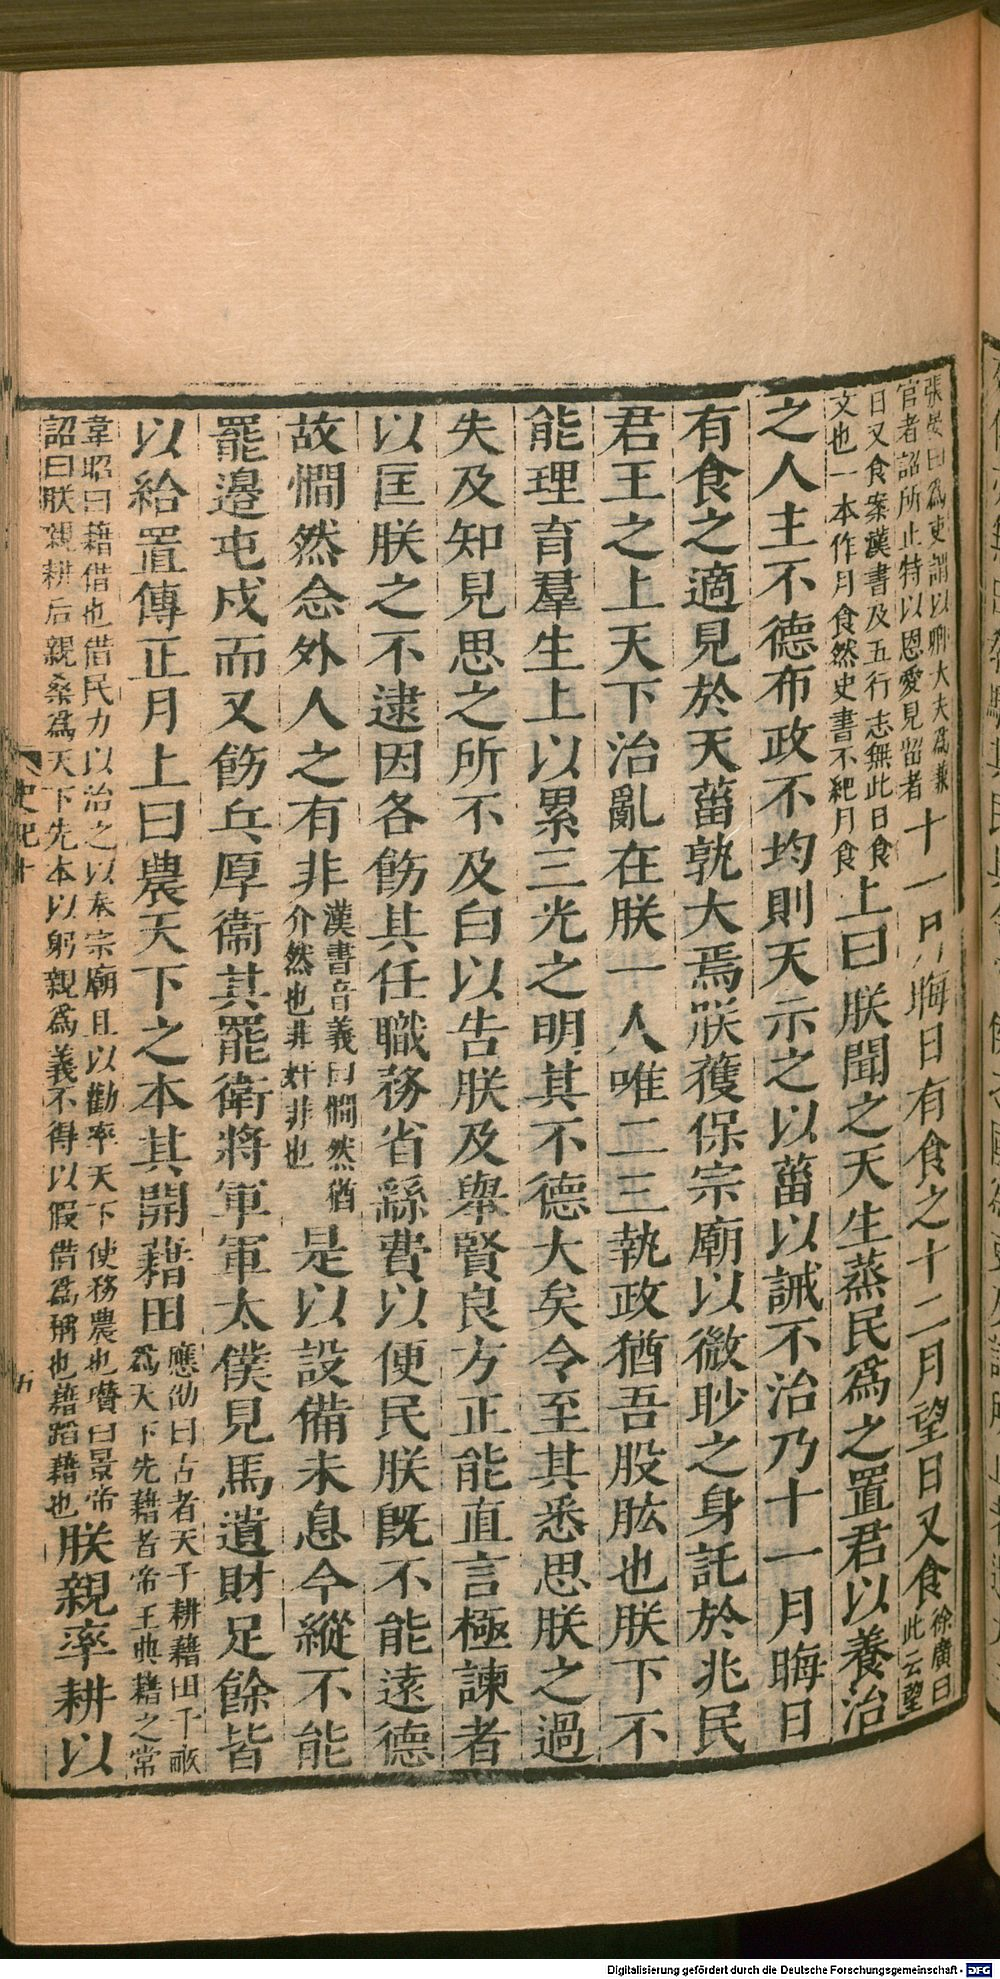 張晏曰爲吏謂以卿大夫爲兼
官者詔所止特以恩愛見留者
十一月晦日有食之十二月望日又食
徐廣曰
此云望
日又食案漢書及五行志無此日食
文也一本作月食然史書不紀月食
上曰朕聞之天生蒸民爲之置君以養治
之人主不德布政不均則天示之以菑以誡不治乃十一月晦日
有食之適見於天菑孰大焉朕獲保宗廟以微眇之身託於兆民
君王之上天下治亂在朕一人唯二三執政猶吾股肱也朕下不
能理育羣生上以累三光之明其不德大矣令至其悉思朕之過
失及知見思之所不及白以告朕及舉賢良方正能直言極諫者
以匡朕之不逮因各飭其任職務省繇費以便民朕既不能遠德
故憪然念外人之有非
漢書音義曰憪然猶
介然也非奸非也
是以設備未息今縱不能
罷邊屯戍而又飭兵厚衞其罷衛將軍軍太僕見馬遺財足餘皆
以給置傳正月上曰農天下之本其開藉田
應劭曰古者天子耕藉田千畝
爲天下先藉者帝王典藉之常
韋昭曰藉借也借民力以治之以奉宗廟且以勸率天下使務農也瓚曰景帝
詔曰朕親耕后親桑爲天下先本以躬親爲義不得以假借爲稱也藉蹈藉也
朕親率耕以
史記十
五
Digitalisierung gefördert durch die Deutsche Forschungsgemeinschaft - DFG